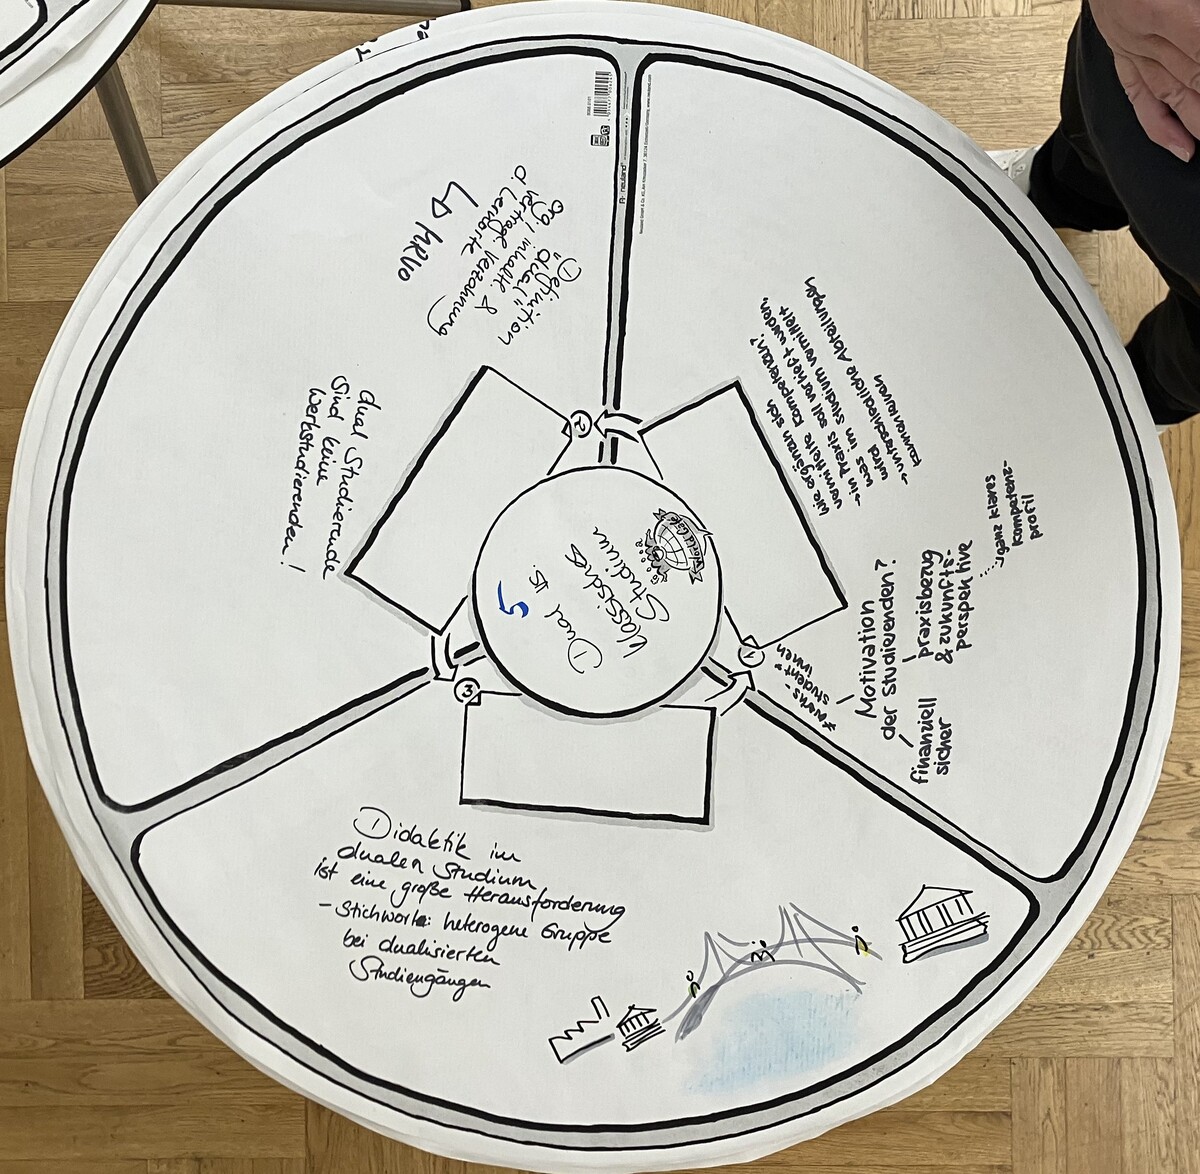 ① Dual vs.
klassisches
Studium
5
World Café
①
wie ergänzen sich
vermittelte Kompetenzen?
- in Praxis soll vertieft werden,
was im Studium vermittelt
wird
- unterschiedliche Abteilungen
kennenlernen
*werks-
student*
innen
Motivation
der Studierenden?
finanziell
sicher
praxisbezug
& zukunfts-
perspektive
ganz klares
kompetenz-
profil
②
① Definition
"dual"
org./ inhaltl. &
vertragl. Verzahnung
d. Lernorte
↳ HRVO
dual Studierende
sind keine
Werkstudierenden!
③
① Didaktik im
dualen Studium
ist eine große Herausforderung
- Stichworte: heterogene Gruppe
bei dualisierten
Studiengängen
neuland